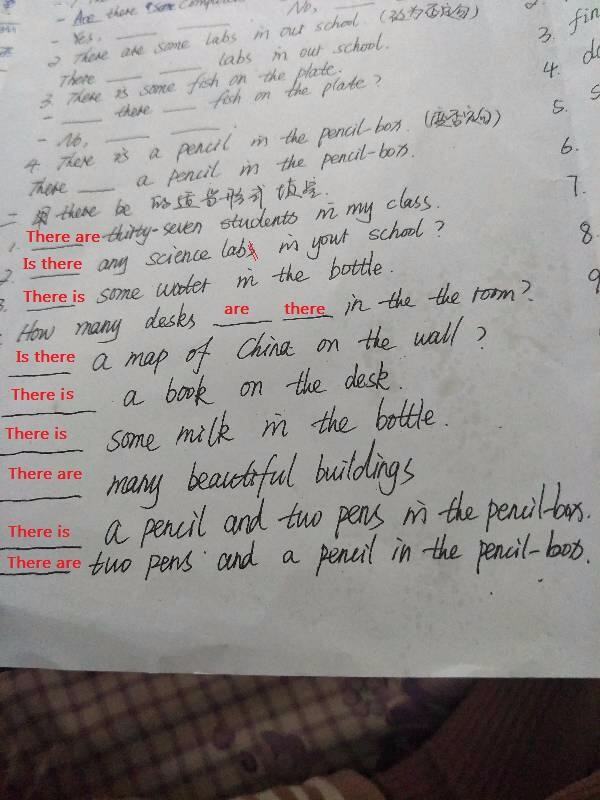 - Are there some
No,
- Yes,
2. There are some labs in out school. (改为否定句)
There ___ ___ labs in out school.
3. There is some fish on the plate.
- ___ there ___ fish on the plate?
- No, ___ ___
4. There is a pencil in the pencil-box. (变否定句)
There ___ a pencil in the pencil-box.
二 用 there be 的适当形式填空.
1. There are thirty-seven students in my class.
2. Is there any science labs in yout school?
3. There is some water in the bottle.
How many desks are there in the the room?
Is there a map of China on the wall?
There is a book on the desk.
There is some milk in the bottle.
There are many beautiful buildings
There is a pencil and two pens in the pencil-box.
There are two pens and a pencil in the pencil-box.
3. fin
4. do
5. S
6.
7.
8.
9